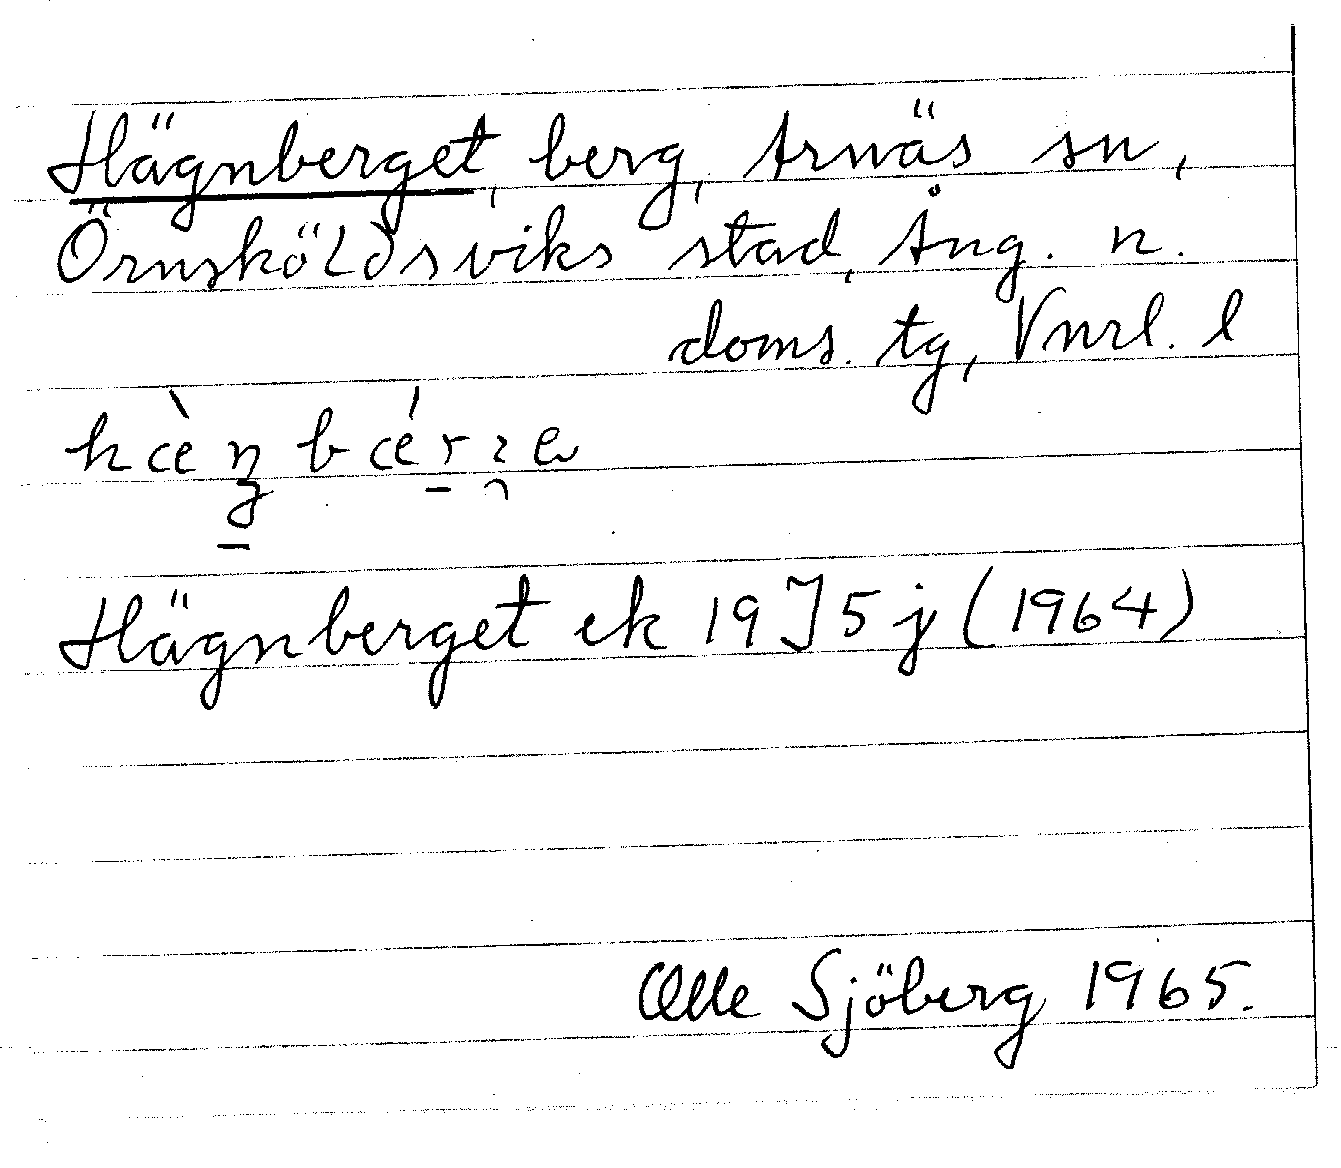 Hägnberget, berg, Arnäs sn,
Örnsköldsviks stad, Ång. n.
doms. tg, Vnrl. l
Hägnberget ek 19J5j (1964)
Olle Sjöberg 1965.